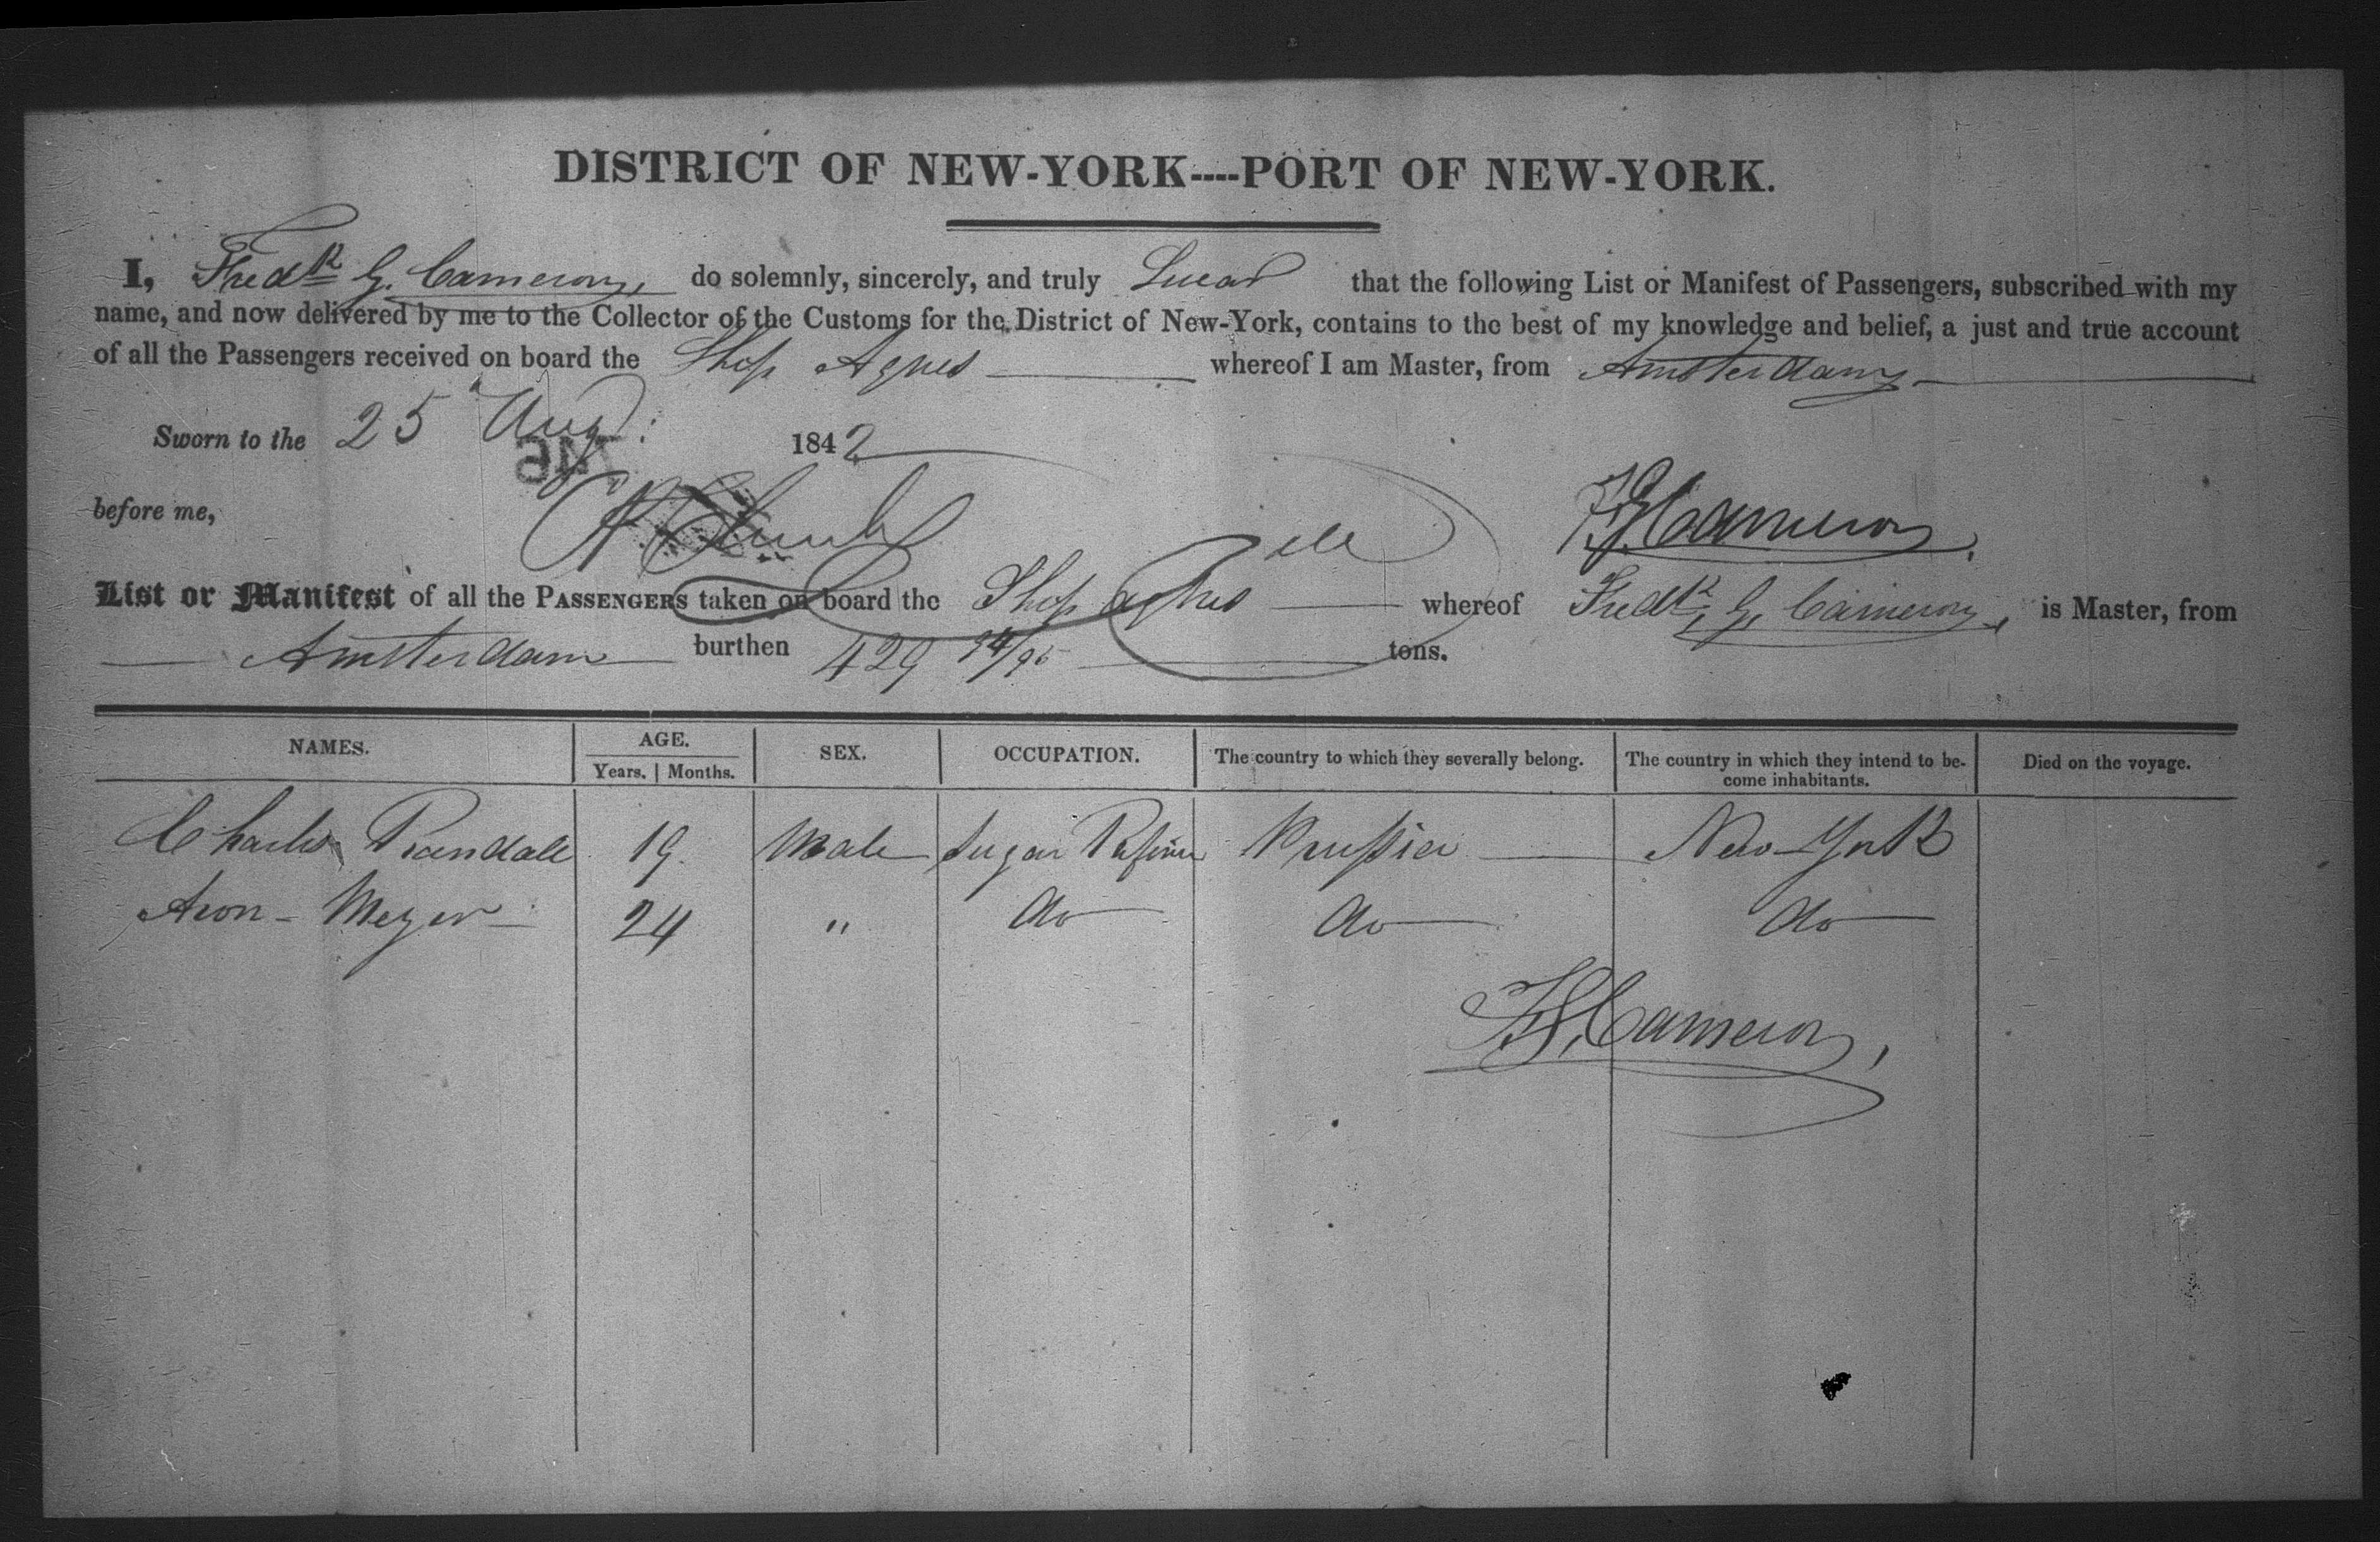 DISTRICT OF NEW-YORK----PORT OF NEW-YORK.
I, Fredk G. Cameron, do solemnly, sincerely, and truly Swear that the following List or Manifest of Passengers, subscribed with my
name, and now delivered by me to the Collector of the Customs for the District of New-York, contains to the best of my knowledge and belief, a just and true account
of all the Passengers received on board the Ship Agnes whereof I am Master, from Amsterdam
Sworn to the 25 Aug: 1842
before me,
F G Cameron.
List or Manifest of all the PASSENGERS taken on board the Ship Agnes whereof Fredk, G, Cameron, is Master, from
Amsterdam burthen 429 94/95 tons.
NAMES. AGE. SEX. OCCUPATION. The country to which they severally belong. The country in which they intend to be-
come inhabitants. Died on the voyage.
Years. | Months.
Charles Randall 19 Male Sugar Refiner Prussia New-York
Aron - Meyer 24 " do do do
F G, Cameron,